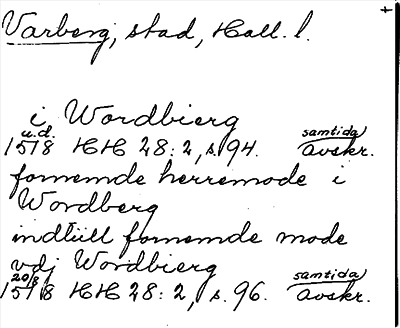 Varberg, stad, Hall. l.
i Wordbierg
u.d. samtida
1518 HH 28:2, s. 94. avskr.
fornemde herremode i
Wordberg
indtiill fornemde mode
vdj Wordbierg
20/8 samtida
1518 HH 28:2, s. 96. avskr.